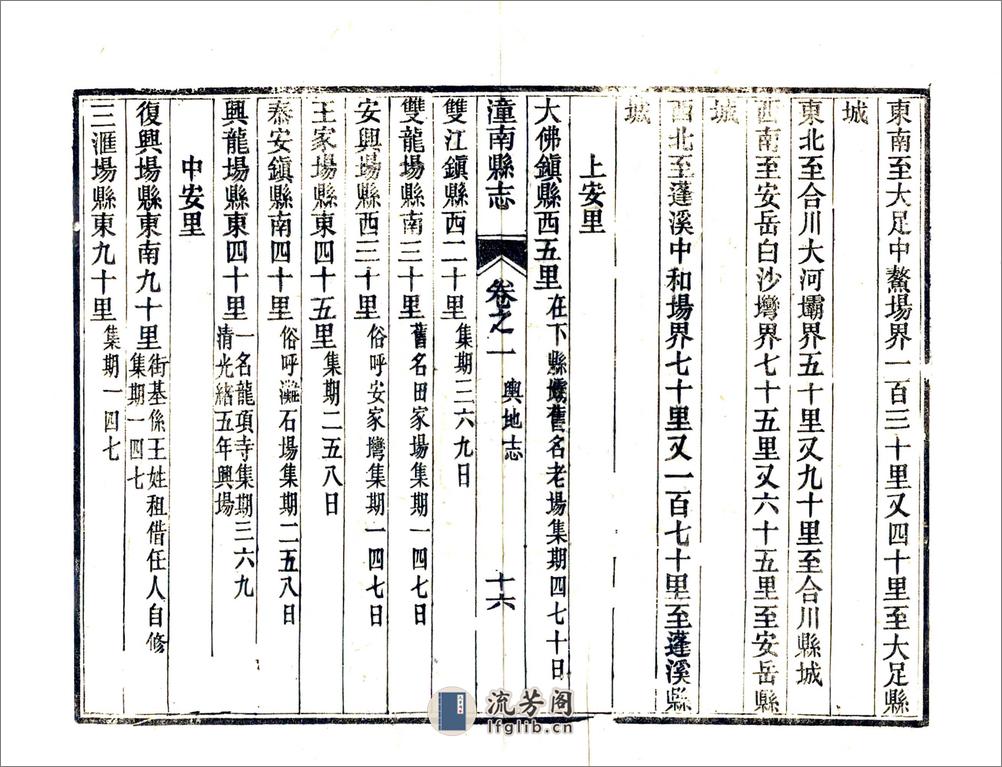 東南至大足中鰲場界一百三十里又四十里至大足縣
城
東北至合川大河壩界五十里又九十里至合川縣城
西南至安岳白沙灣界七十五里又六十五里至安岳縣
城
西北至蓬溪中和場界七十里又一百七十里至蓬溪縣
城
上安里
大佛鎮縣西五里在下縣壩舊名老場集期四七十日
潼南縣志 卷之一 輿地志 十六
雙江鎮縣西二十里集期三六九日
雙龍場縣南三十里舊名田家場集期一四七日
安興場縣西三十里俗呼安家灣集期一四七日
王家場縣東四十五里集期二五八日
泰安鎮縣南四十里俗呼灘石場集期二五八日
興龍場縣東四十里一名龍項寺集期三六九
清光緒五年興場
中安里
復興場縣東南九十里街基係王姓租借任人自修
集期一四七
三滙場縣東九十里集期一四七
流芳阁
lfglib.cn